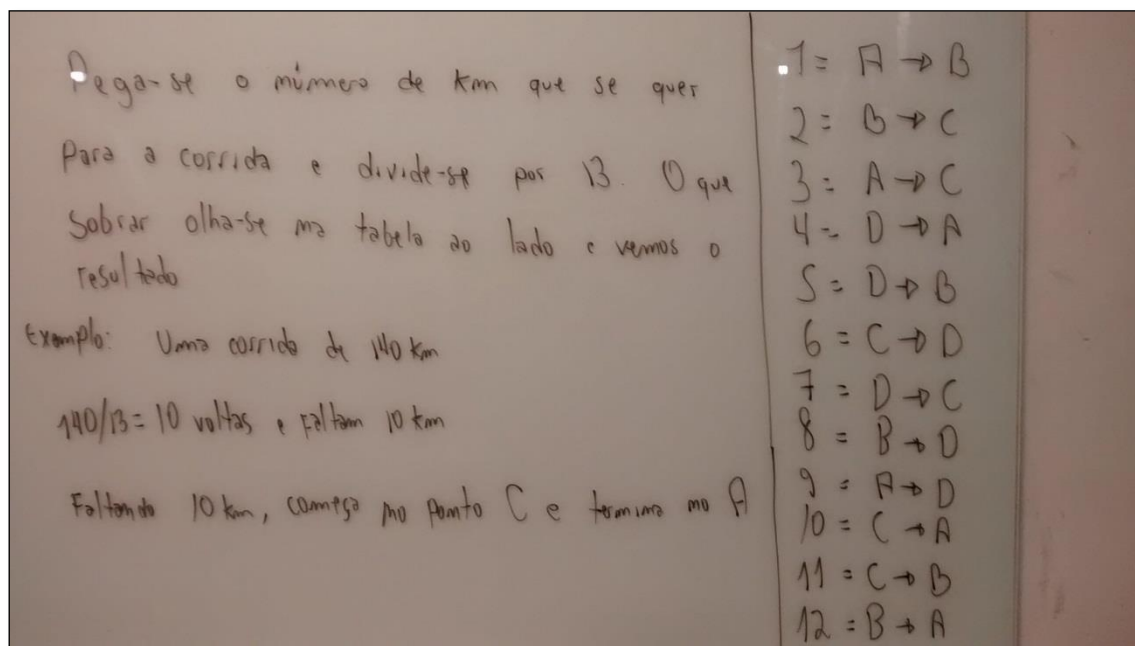 Pega-se o número de km que se quer
para a corrida e divide-se por 13. O que
sobrar olha-se na tabela ao lado e vemos o
resultado
Exemplo: Uma corrida de 140 km
140/13 = 10 voltas e faltam 10 km
Faltando 10 km, começa no ponto C e termina no A
1 = A → B
2 = B → C
3 = A → C
4 = D → A
5 = D → B
6 = C → D
7 = D → C
8 = B → D
9 = A → D
10 = C → A
11 = C → B
12 = B → A